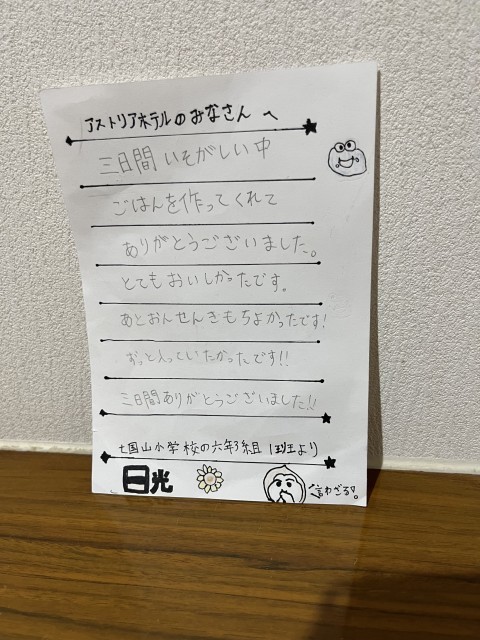 アストリアホテルのおなさん へ
三日間 いそがしい中
ごはんを作ってくれて
ありがとうございました。
とてもおいしかったです。
あとおんせんきもちよかったです!
ずっと入っていたかったです!!
三日間ありがとうございました!!
七国山小学校の六年3組 1班より
日光
言わざる。